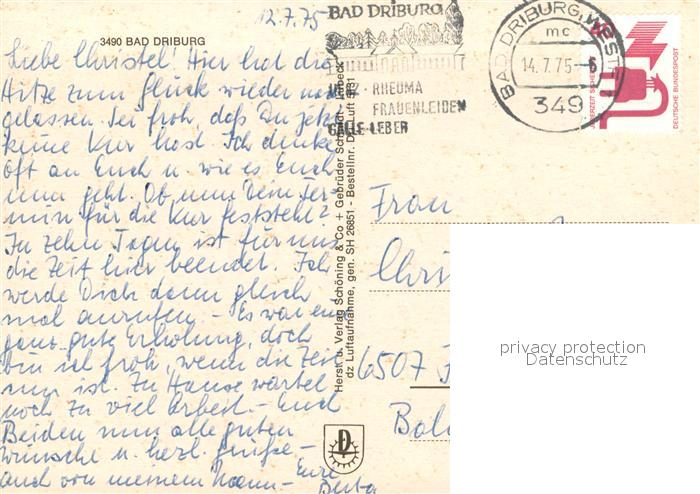 12.7.75
3490 BAD DRIBURG
Liebe Christel! Hier hat die
Hitze zum Glück wieder nach
gelassen. Sei froh, daß Du jetzt
keine Kur hast. Ich denke
oft an Euch u. wie es Euch
nun geht. Ob nun Dein Ter-
min für die Kur feststeht?
In zehn Tagen ist für uns
die Zeit hier beendet. Ich
werde Dich dann gleich
mal anrufen - Es war eine
ganz gute Erholung, doch
bin ich froh, wenn die Zeit
um ist. Zu Hause wartet
noch zu viel Arbeit - Euch
Beiden nun alle guten
Wünsche u. herzl. Grüße -
auch von meinem Mann - Eure
Berta
Herst. u. Verlag Schöning & Co + Gebrüder Schmidt, Lübeck
dz Luftaufnahme, gen. SH 26851 - Bestellnr. Dri. Luft
BAD DRIBURG
HERZ · RHEUMA
FRAUENLEIDEN
GALLE-LEBER
BAD DRIBURG, WESTF
mc
14.7.75 - 6
349
JEDERZEIT SICHERHEIT
DEUTSCHE BUNDESPOST
Frau
6507
privacy protection
Datenschutz